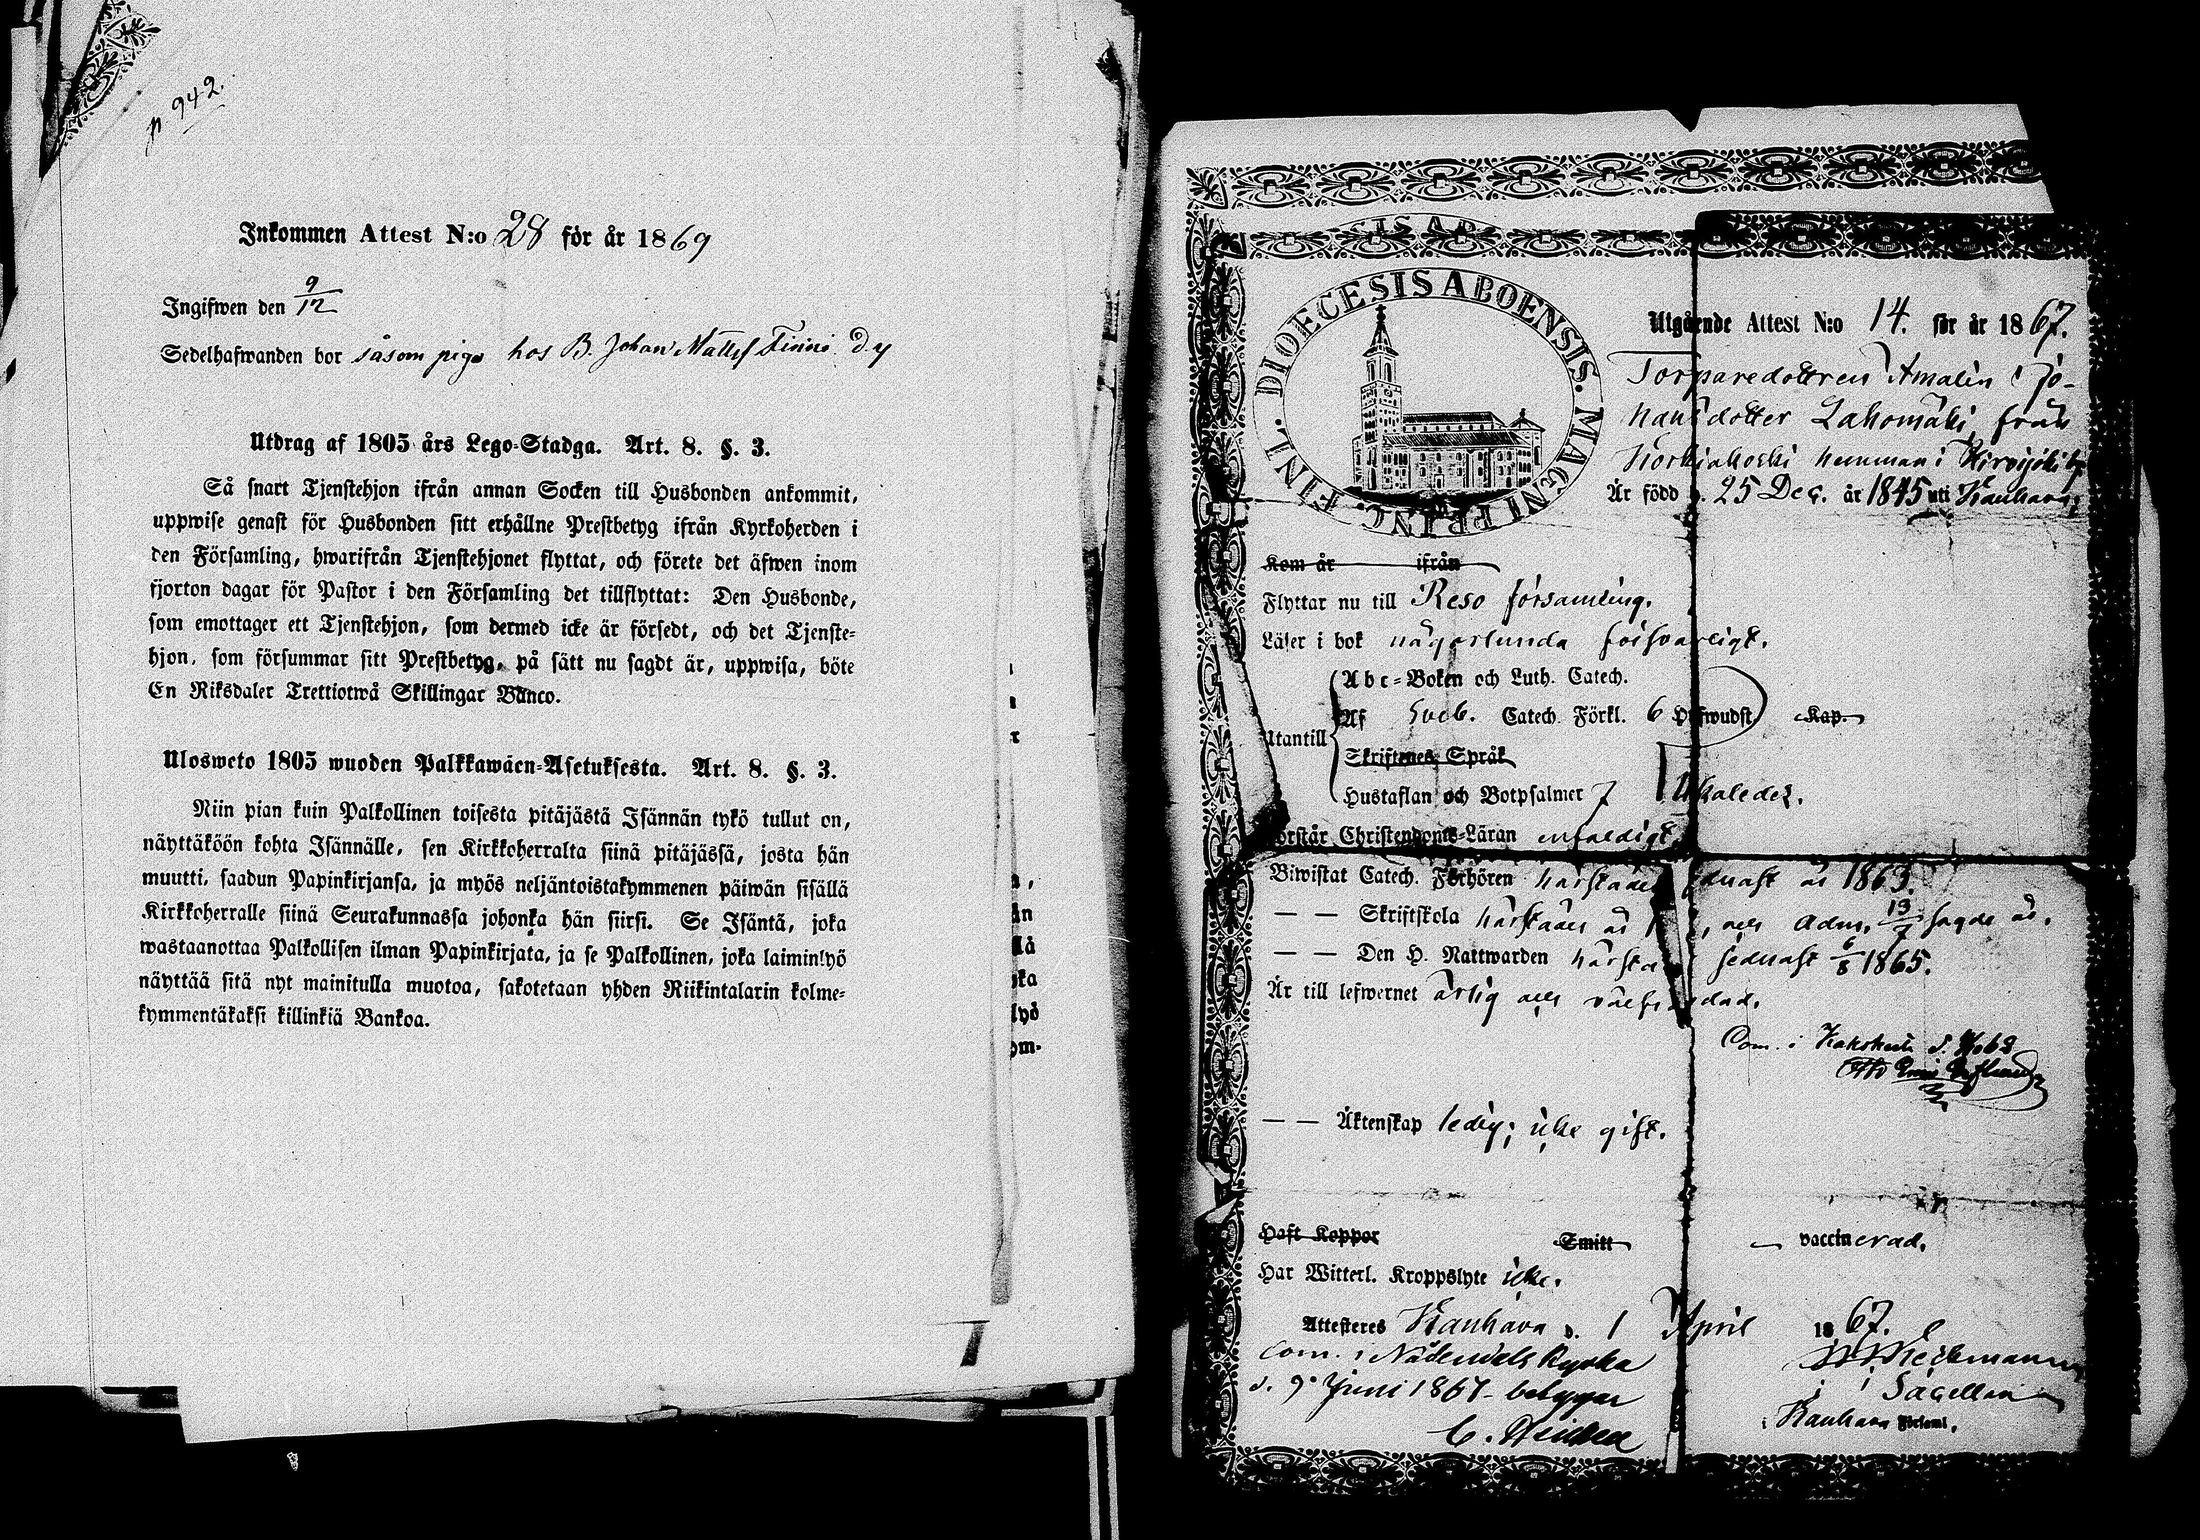 p 942.
Inkommen Attest N:o 28 för år 1869
Ingifwen den 9/12
Sedelhafwanden bor såsom piga hos B. Johan Matts Finni
Utdrag af 1805 års Lego-Stadga. Art. 8. §. 3.
Så snart Tjenstehjon ifrån annan Socken till Husbonden ankommit,
uppwise genast för Husbonden sitt erhållne Prestbetyg ifrån Kyrkoherden i
den Församling, hwarifrån Tjenstehjonet flyttat, och förete det äfwen inom
fjorton dagar för Pastor i den Församling det tillflyttat: Den Husbonde,
som emottager ett Tjenstehjon, som dermed icke är försedt, och det Tjenste-
hjon, som försummar sitt Prestbetyg, på sätt nu sagdt är, uppwisa, böte
En Riksdaler Trettiotwå Skillingar Banco.
Ulosweto 1805 wuoden Palkkawäen-Asetuksesta. Art. 8. §. 3.
Niin pian kuin Palkollinen toisesta pitäjästä Isännän tykö tullut on,
näyttäköön kohta Isännälle, sen Kirkkoherralta siinä pitäjässä, josta hän
muutti, saadun Papinkirjansa, ja myös neljäntoistakymmenen päiwän sisällä
Kirkkoherralle siinä Seurakunnassa johonka hän siirsi. Se Isäntä, joka
wastaanottaa Palkollisen ilman Papinkirjata, ja se Palkollinen, joka laiminlyö
näyttää sitä nyt mainitulla muotoa, sakotetaan yhden Riikintalarin kolme-
kymmentäkaksi killinkiä Bankoa.
DIOECESIS ABOENSIS. MAGNI PRINC. FINL.
Utgående Attest N:o 14. för år 1867.
Torparedottren Amalia Jo-
hansdotter Lahomäki, från
Korkiakoski hemman i Hirvijoki by
Är född d. 25 Dec. år 1845 uti Kauhava;
Kom år ifrån
Flyttar nu till Reso församling.
Läser i bok någorlunda försvarligt.
Abc-Boken och Luth. Catech.
Utantill
Af Sveb. Catech. Förkl. 6 Hufwudst. Kap.
Skriftenes Språk
Hustaflan och Botpsalmer 7
Förstår Christendoms-Läran enfaldigt
Biwistat Catech. Förhören härstädes sednast år 1863.
— — Skriftskola härstädes år och Adm. 13/7 sagde år.
— — Den H. Nattwarden härstädes sednast 6/8 1865.
Är till lefwernet ärlig och välfrejdad.
Com. i
— — Äktenskap ledig; icke gift.
Haft Koppor Smitt — vaccinerad.
Har Witterl. Kroppslyte icke.
Attesteres Kauhava d. 1 April 1867.
Com. i Nådendals Kyrka
d. 9 Juni 1867 betygar
Sacellan
i Kauhava Församl.